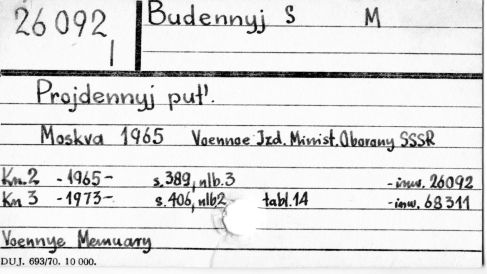 26092,
I
Budennyj S M
Projdennyj put'.
Moskva 1965 Voennoe Izd. Minist. Oborony SSSR
Kn.2 -1965- s.389, nlb.3 -inw. 26092
Kn 3 -1973- s.406, nlb2 tabl.14 -inw. 68311
Voennye Memuary
DUJ. 693/70. 10 000.